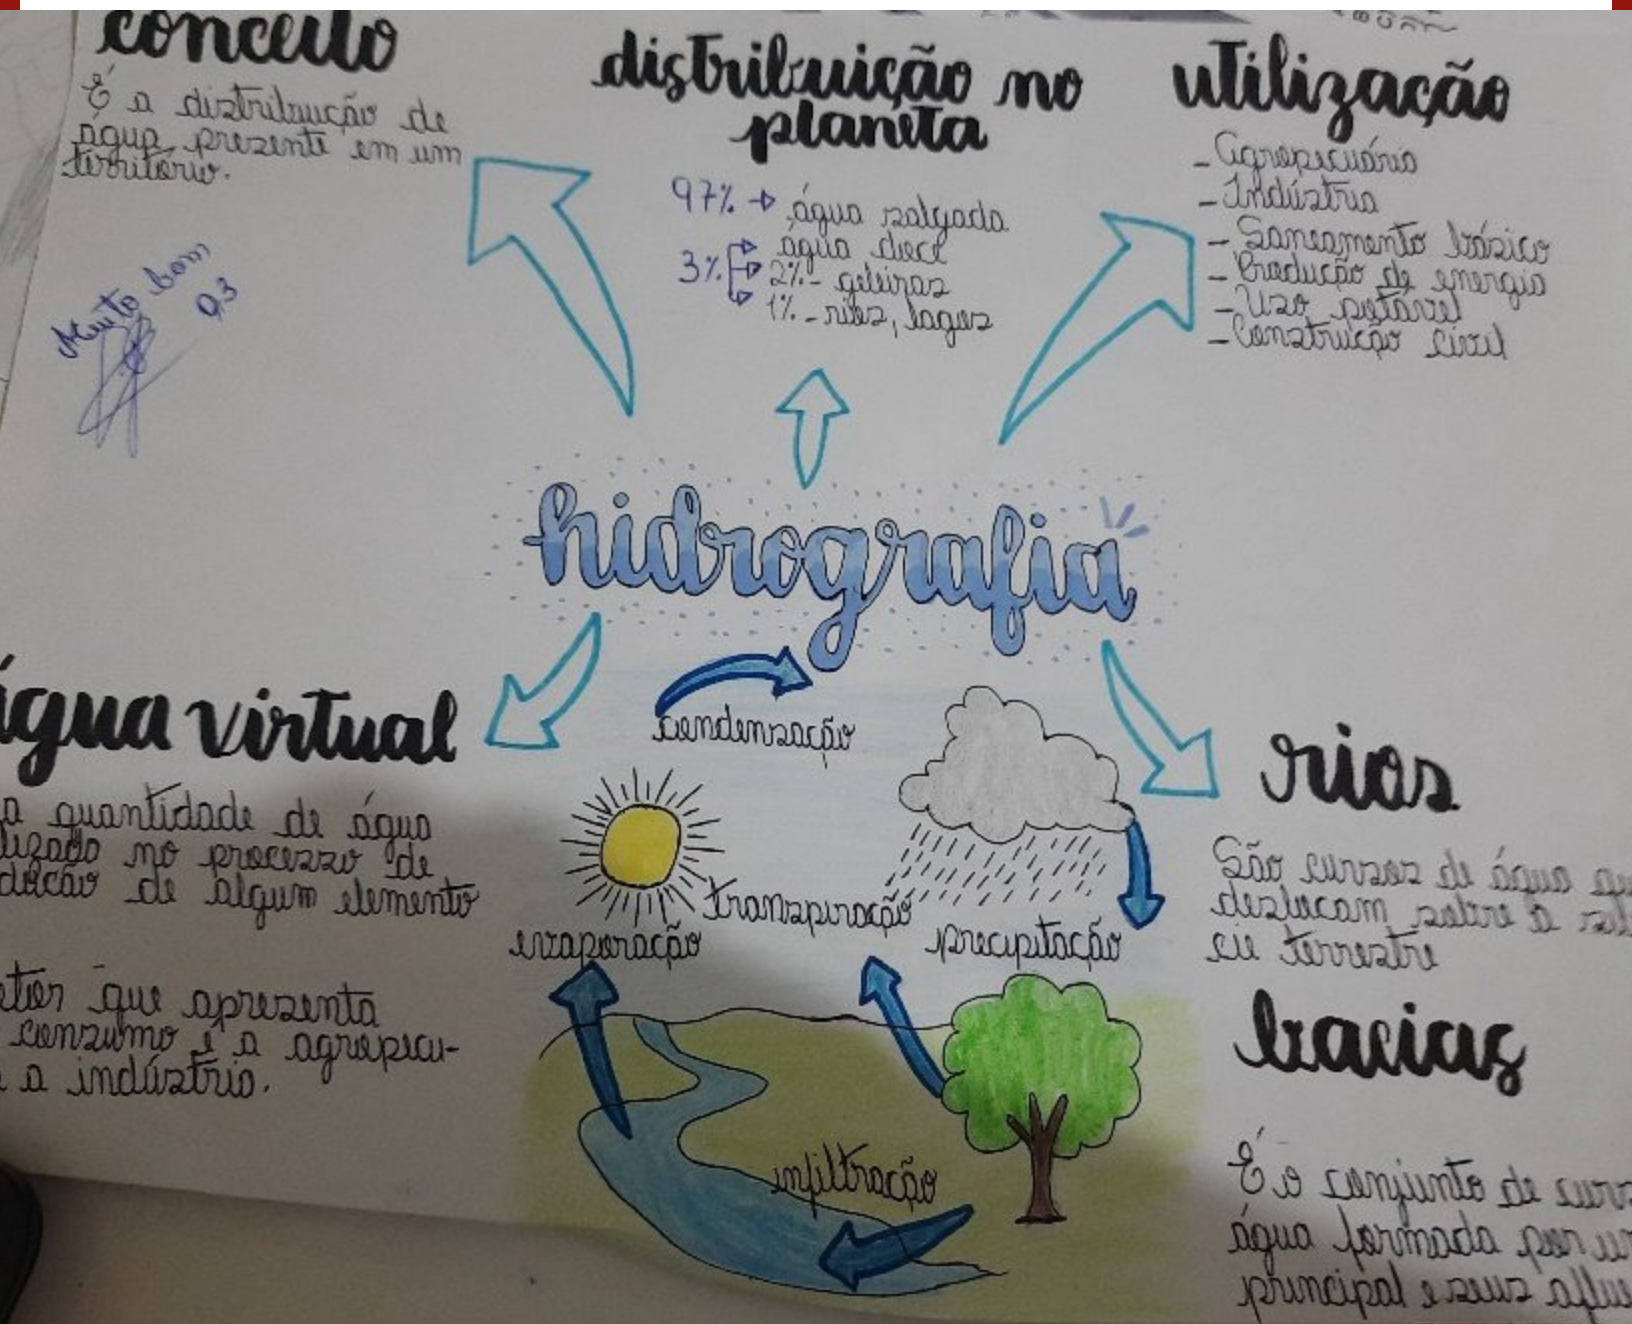 conceito
É a distribuição de
água presente em um
território.
Muito bom
0,3
distribuição no
planeta
97% → água salgada
3% → água doce
2% - geleiras
1% - rios, lagos
utilização
- Agropecuária
- Indústria
- Saneamento básico
- Produção de energia
- Uso potável
- Construção civil
hidrografia
água virtual
a quantidade de água
lizado no processo de
dução de algum elemento
etor que apresenta
consumo é a agropecu-
a indústria.
condensação
transpiração
evaporação
precipitação
infiltração
rios
São cursos de água qu
deslocam sobre a su
cie terrestre
bacias
É o conjunto de curs
água formada por u
principal e seus aflu